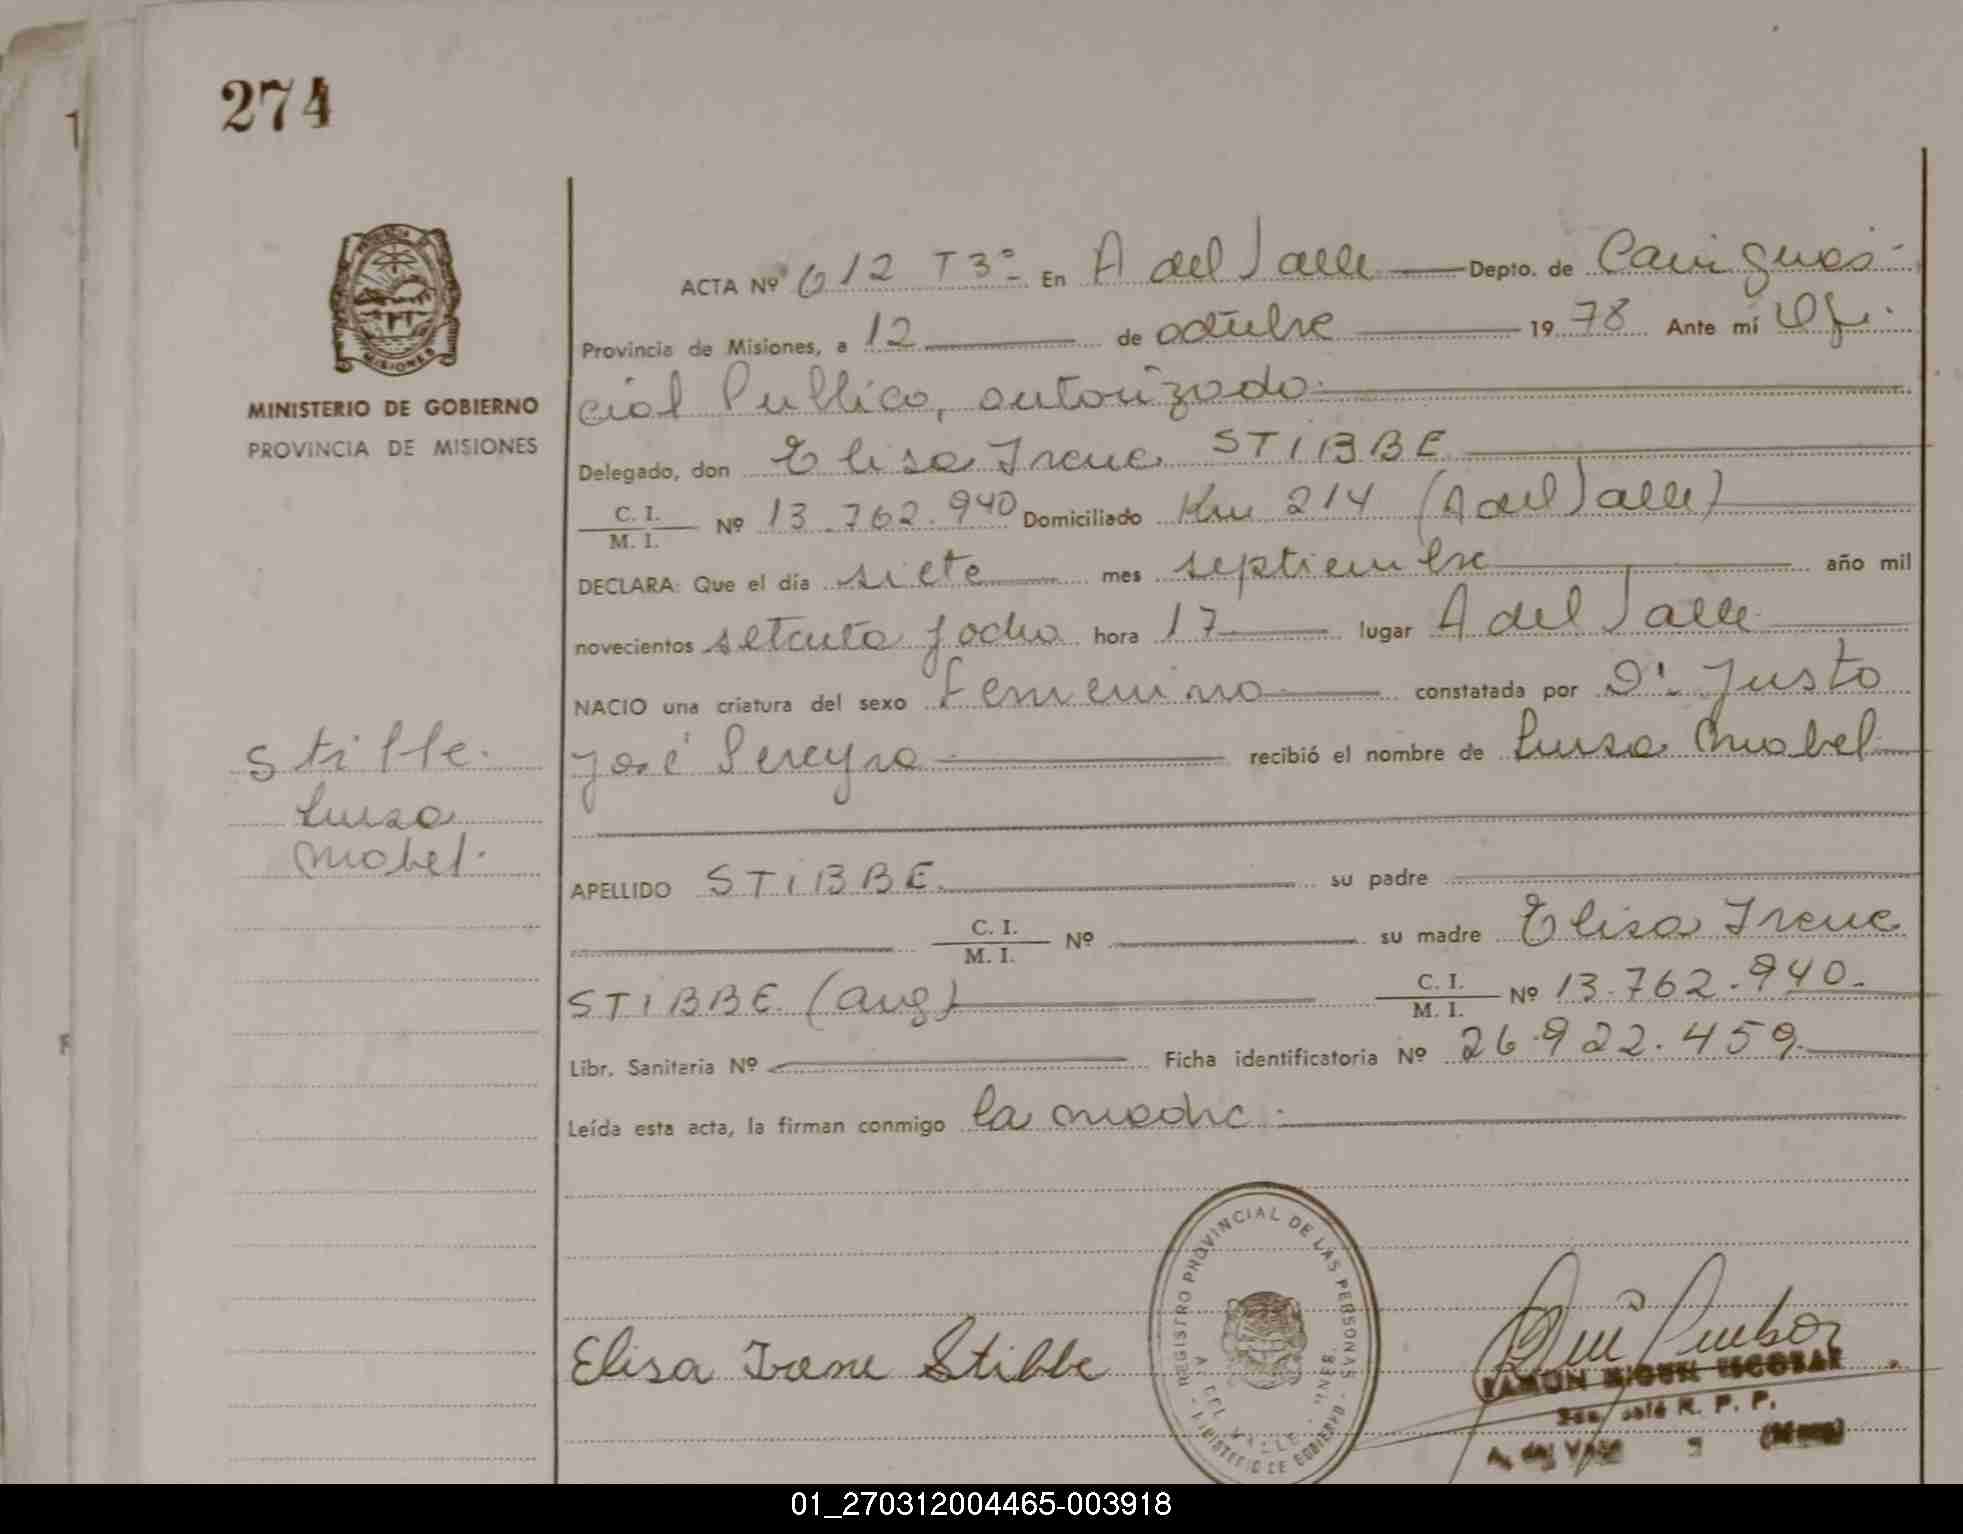 274
MINISTERIO DE GOBIERNO
PROVINCIA DE MISIONES
ACTA Nº 612 T3º En A del Valle Depto. de Cainguás
Provincia de Misiones, a 12 de octubre 1978 Ante mí Ofi
cial Publico, autorizado
Delegado, don Elisa Irene STIBBE
C. I. / M. I. Nº 13.762.940 Domiciliado Km 214 (A del Valle)
DECLARA: Que el día siete mes septiembre año mil
novecientos setenta y ocho hora 17 lugar A del Valle
NACIO una criatura del sexo femenino constatada por Dr. Justo
José Pereyra recibió el nombre de Luisa Mabel
Stibbe.
Luisa
Mabel.
APELLIDO STIBBE su padre
C. I. / M. I. Nº su madre Elisa Irene
STIBBE (arg) C. I. / M. I. Nº 13.762.940.
Libr. Sanitaria Nº Ficha identificatoria Nº 26.922.459
Leída esta acta, la firman conmigo la madre.
Elisa Irene Stibbe
REGISTRO PROVINCIAL DE LAS PERSONAS
A. DEL VALLE
MINISTERIO DE GOBIERNO
RAMON MIGUEL ESCOBAR
R. P. P.
A. del Valle
01_270312004465-003918